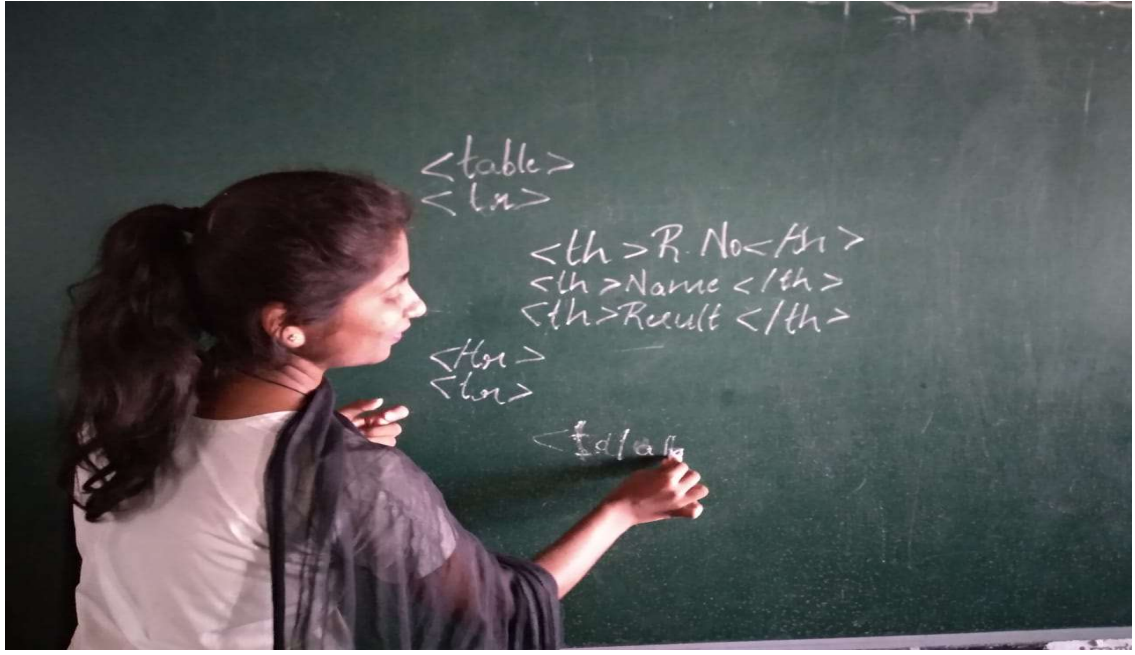 <table>
<tr>
<th>R.No</th>
<th>Name</th>
<th>Result</th>
</tr>
<tr>